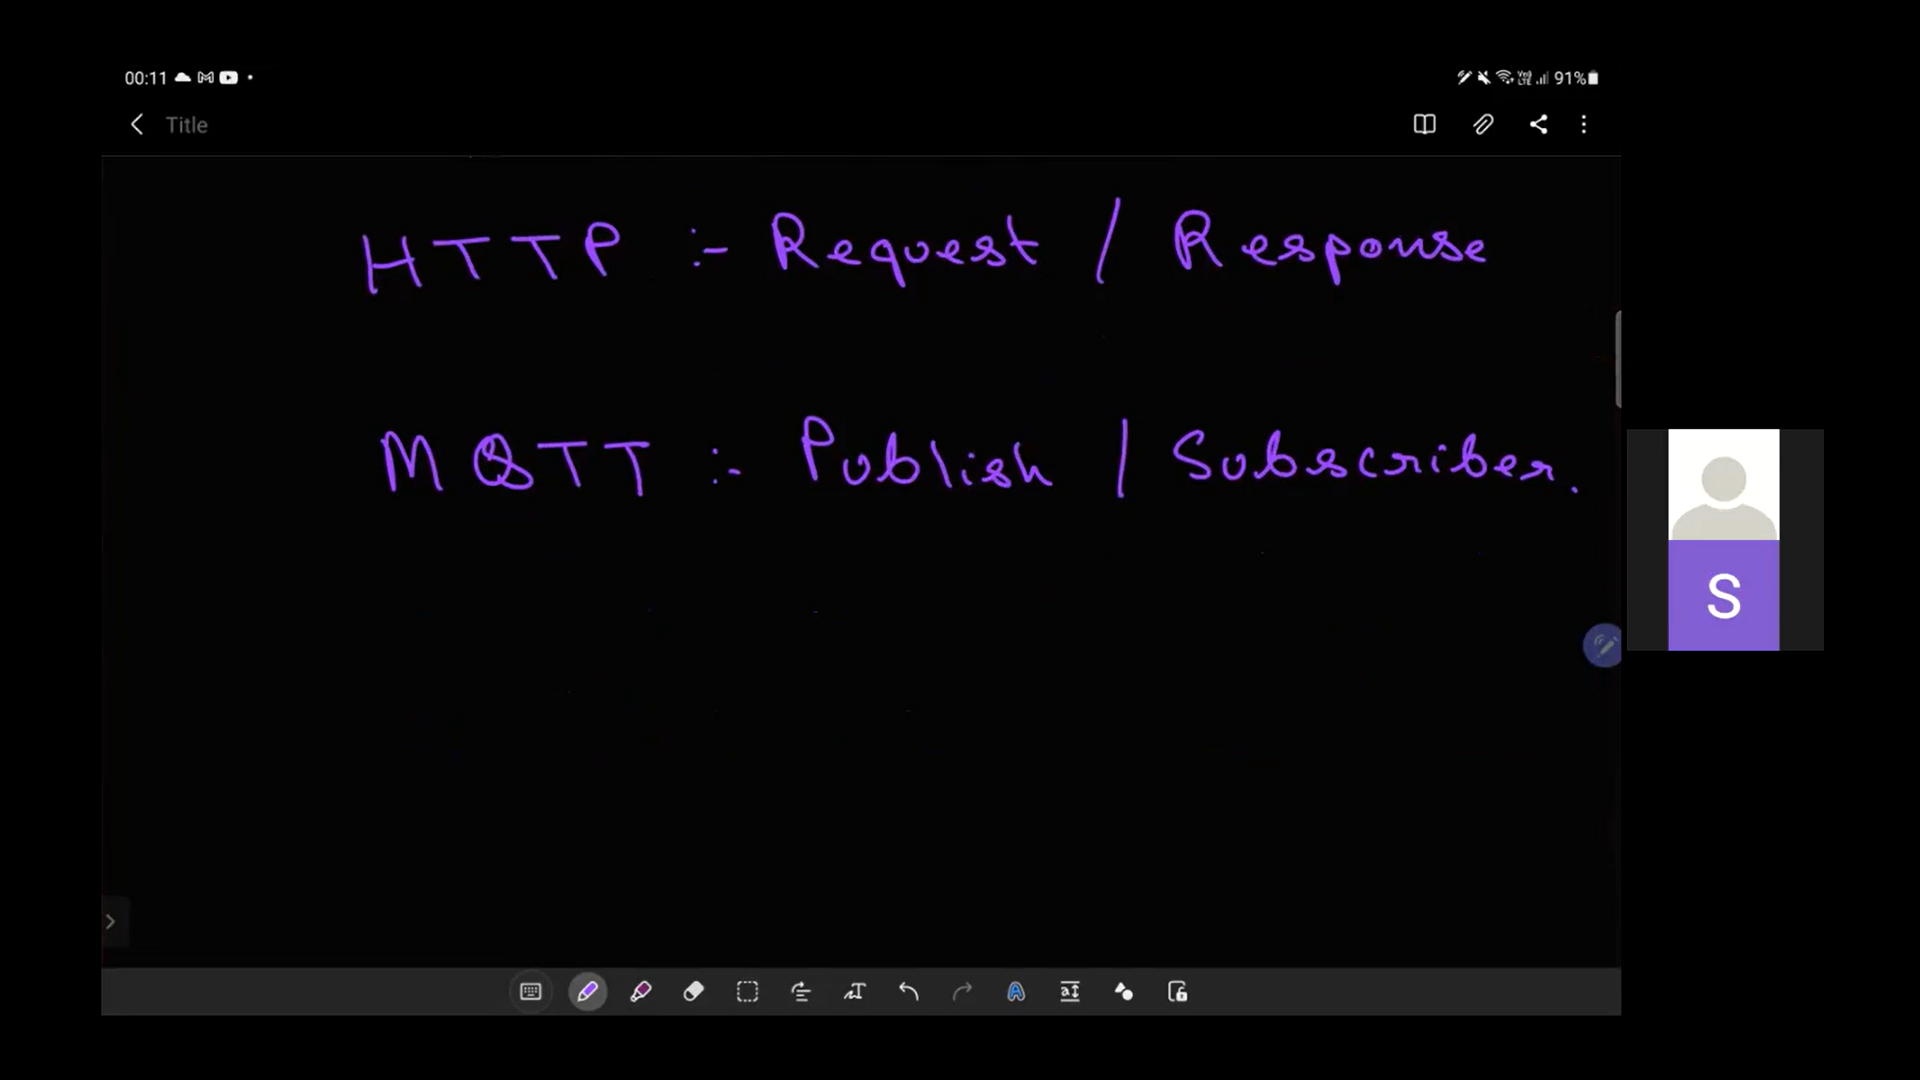 00:11 91%
Title
HTTP :- Request / Response
MQTT :- Publish / Subscriber.
S